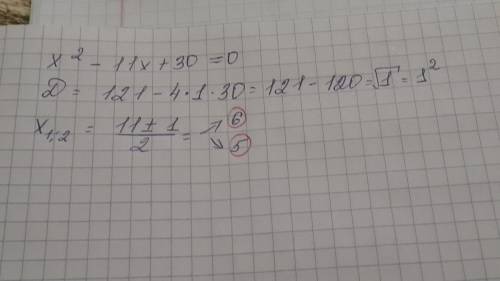 x² - 11x + 30 = 0
D = 121 - 4·1·30 = 121 - 120 = √1 = 1²
x₁,₂ = (11 ± 1)/2 = ↗ 6 ↘ 5